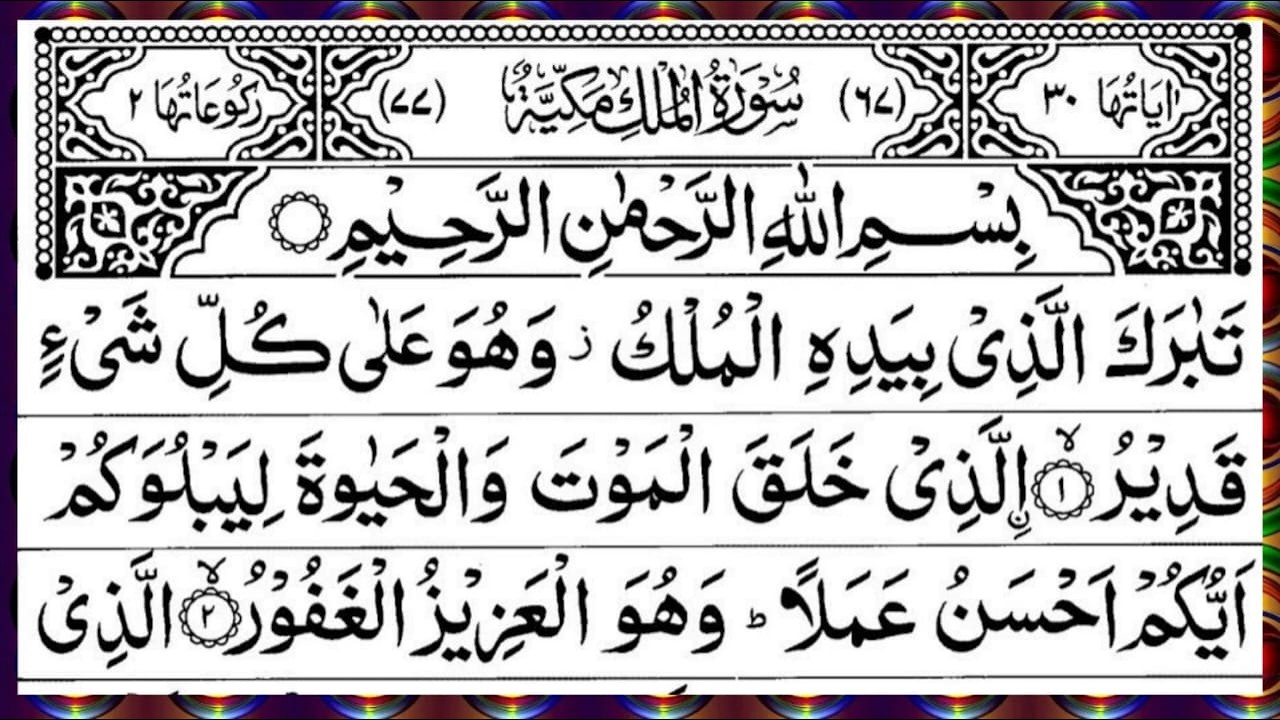 اٰیَاتُهَا ۳۰ (۶۷) سُوْرَةُ الْمُلْكِ مَكِّیَّةٌ (۷۷) رُكُوْعَاتُهَا ۲
بِسْمِ اللّٰهِ الرَّحْمٰنِ الرَّحِیْمِ
تَبٰرَكَ الَّذِیْ بِیَدِهِ الْمُلْكُ ز وَهُوَ عَلٰی كُلِّ شَیْءٍ
قَدِیْرُ ۙ﴿۱﴾ اۨلَّذِیْ خَلَقَ الْمَوْتَ وَالْحَیٰوةَ لِیَبْلُوَكُمْ
اَیُّكُمْ اَحْسَنُ عَمَلًا ؕ وَهُوَ الْعَزِیْزُ الْغَفُوْرُ ۙ﴿۲﴾ الَّذِیْ